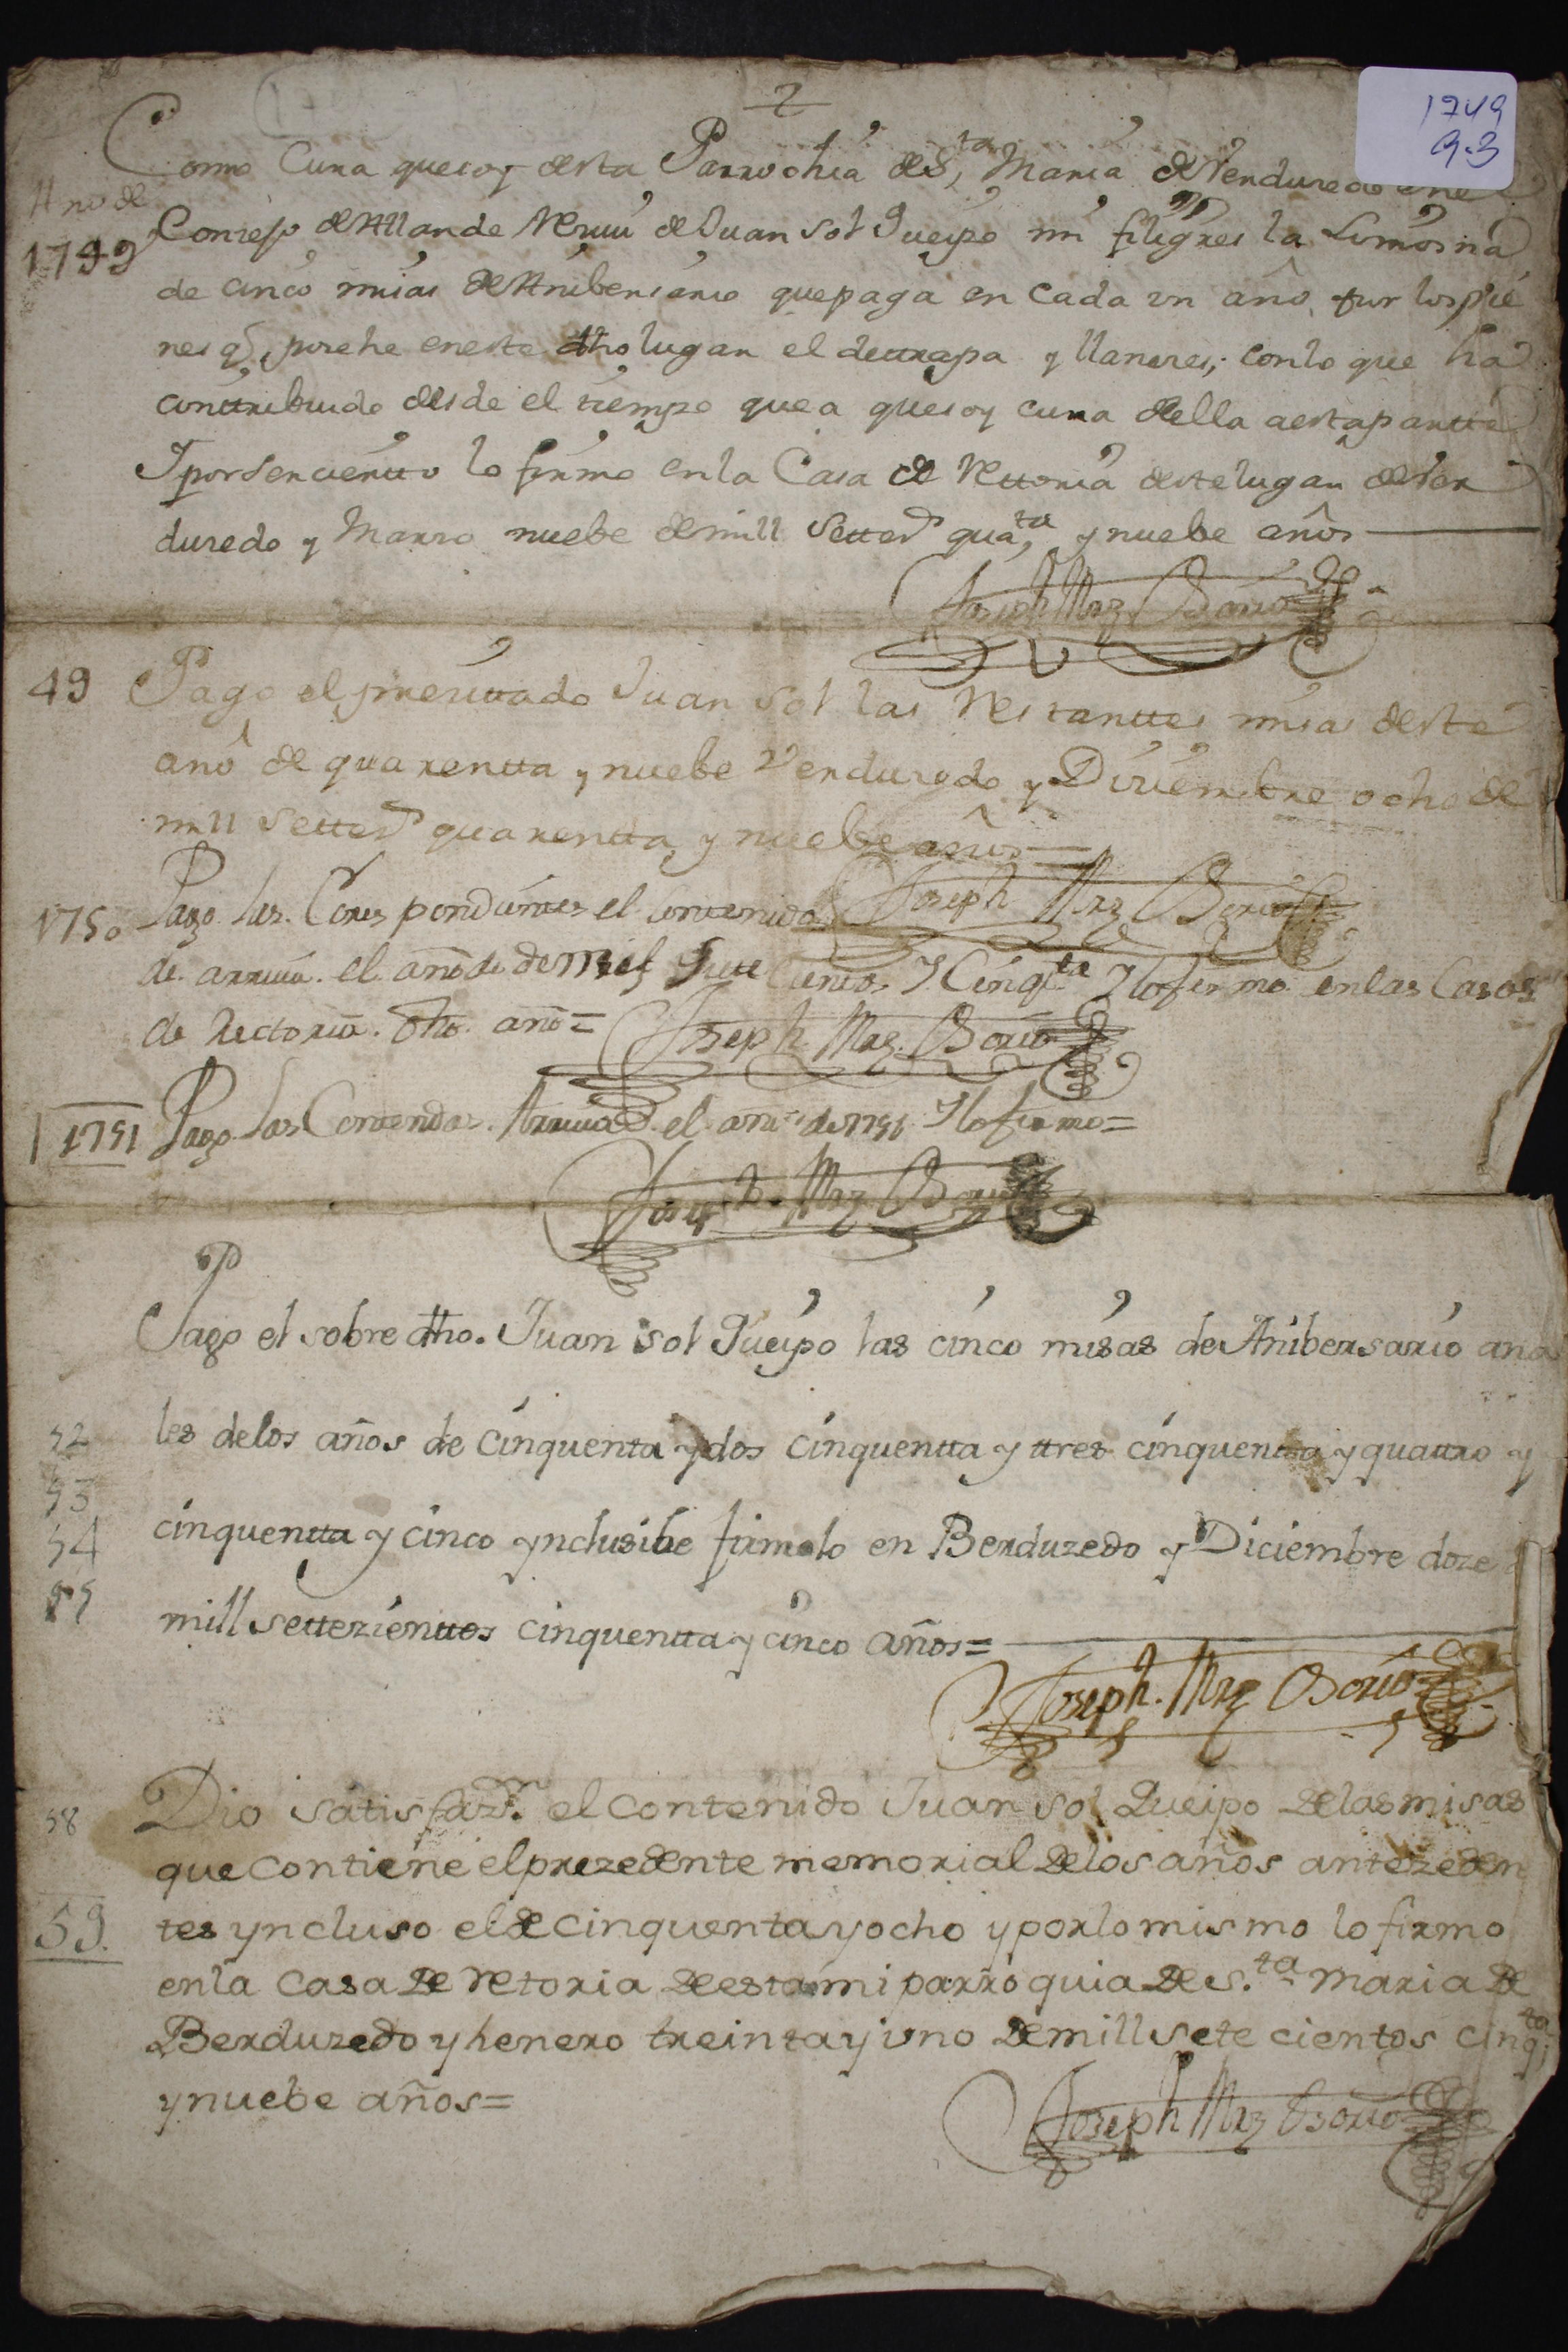 2
1749
9-3
Como Cura que soy desta Parrochia de S.ta Maria de Berduredo en el
Año de
1749
Conzejo de Allande Reziuí de Juan Sol Queipo mi feligres la Limosna
de cinco misas de Anibersario que paga en cada un año, por los vie
nes q.e posehe en este dho lugar el de trapa y llaneres; con lo que ha
contribuido desde el tiempo que a que soy cura della a esta partte
Y por ser cierto lo firmo en la Casa de Rettoria deste lugar de Ver
duredo y Marzo nuebe de mill settez.s qua.ta y nuebe años
Joseph Mrz Osorio
49 Pago el prezittado Juan Sol las Restanttes misas deste
año de quarentta y nuebe Verduredo y Diziembre ocho de
mill settez.s quarentta y nuebe años
Joseph Mrz Osorio
1750 Pago las Correspondientes el Contenido
de arriua el año de de mil Siete Cientos Y Cinq.ta Y lo firmo en las Casas
de Rectoria dho año=
Joseph Mrz. Osorio
1751 Pago las Contenidas Arriua el año de 1751 Y lo firmo=
Joseph Mrz Osorio
Pago el sobre dho. Juan Sol Queipo las cinco misas de Anibersario ana
52 les de los años de cinquenta y dos cinquentta y ttres cinquentta y quattro y
53
54 cinquentta y cinco ynclusibe firmolo en Berduzedo y Diciembre doze
55 mill settezienttos cinquentta y cinco años=
Joseph. Mrz Osorio
58 Dio satisfaz.on el contenido Juan Sol Queipo de las misas
que contiene el prezedente memorial de los años antezeden
59. tes yncluso el de cinquenta y ocho y por lo mismo lo firmo
en la casa de Retoria de esta mi parroquia de S.ta Maria de
Berduzedo y henero treinta y uno de mill sete cientos cinq.ta
y nuebe años=
Joseph Mrz Osorio